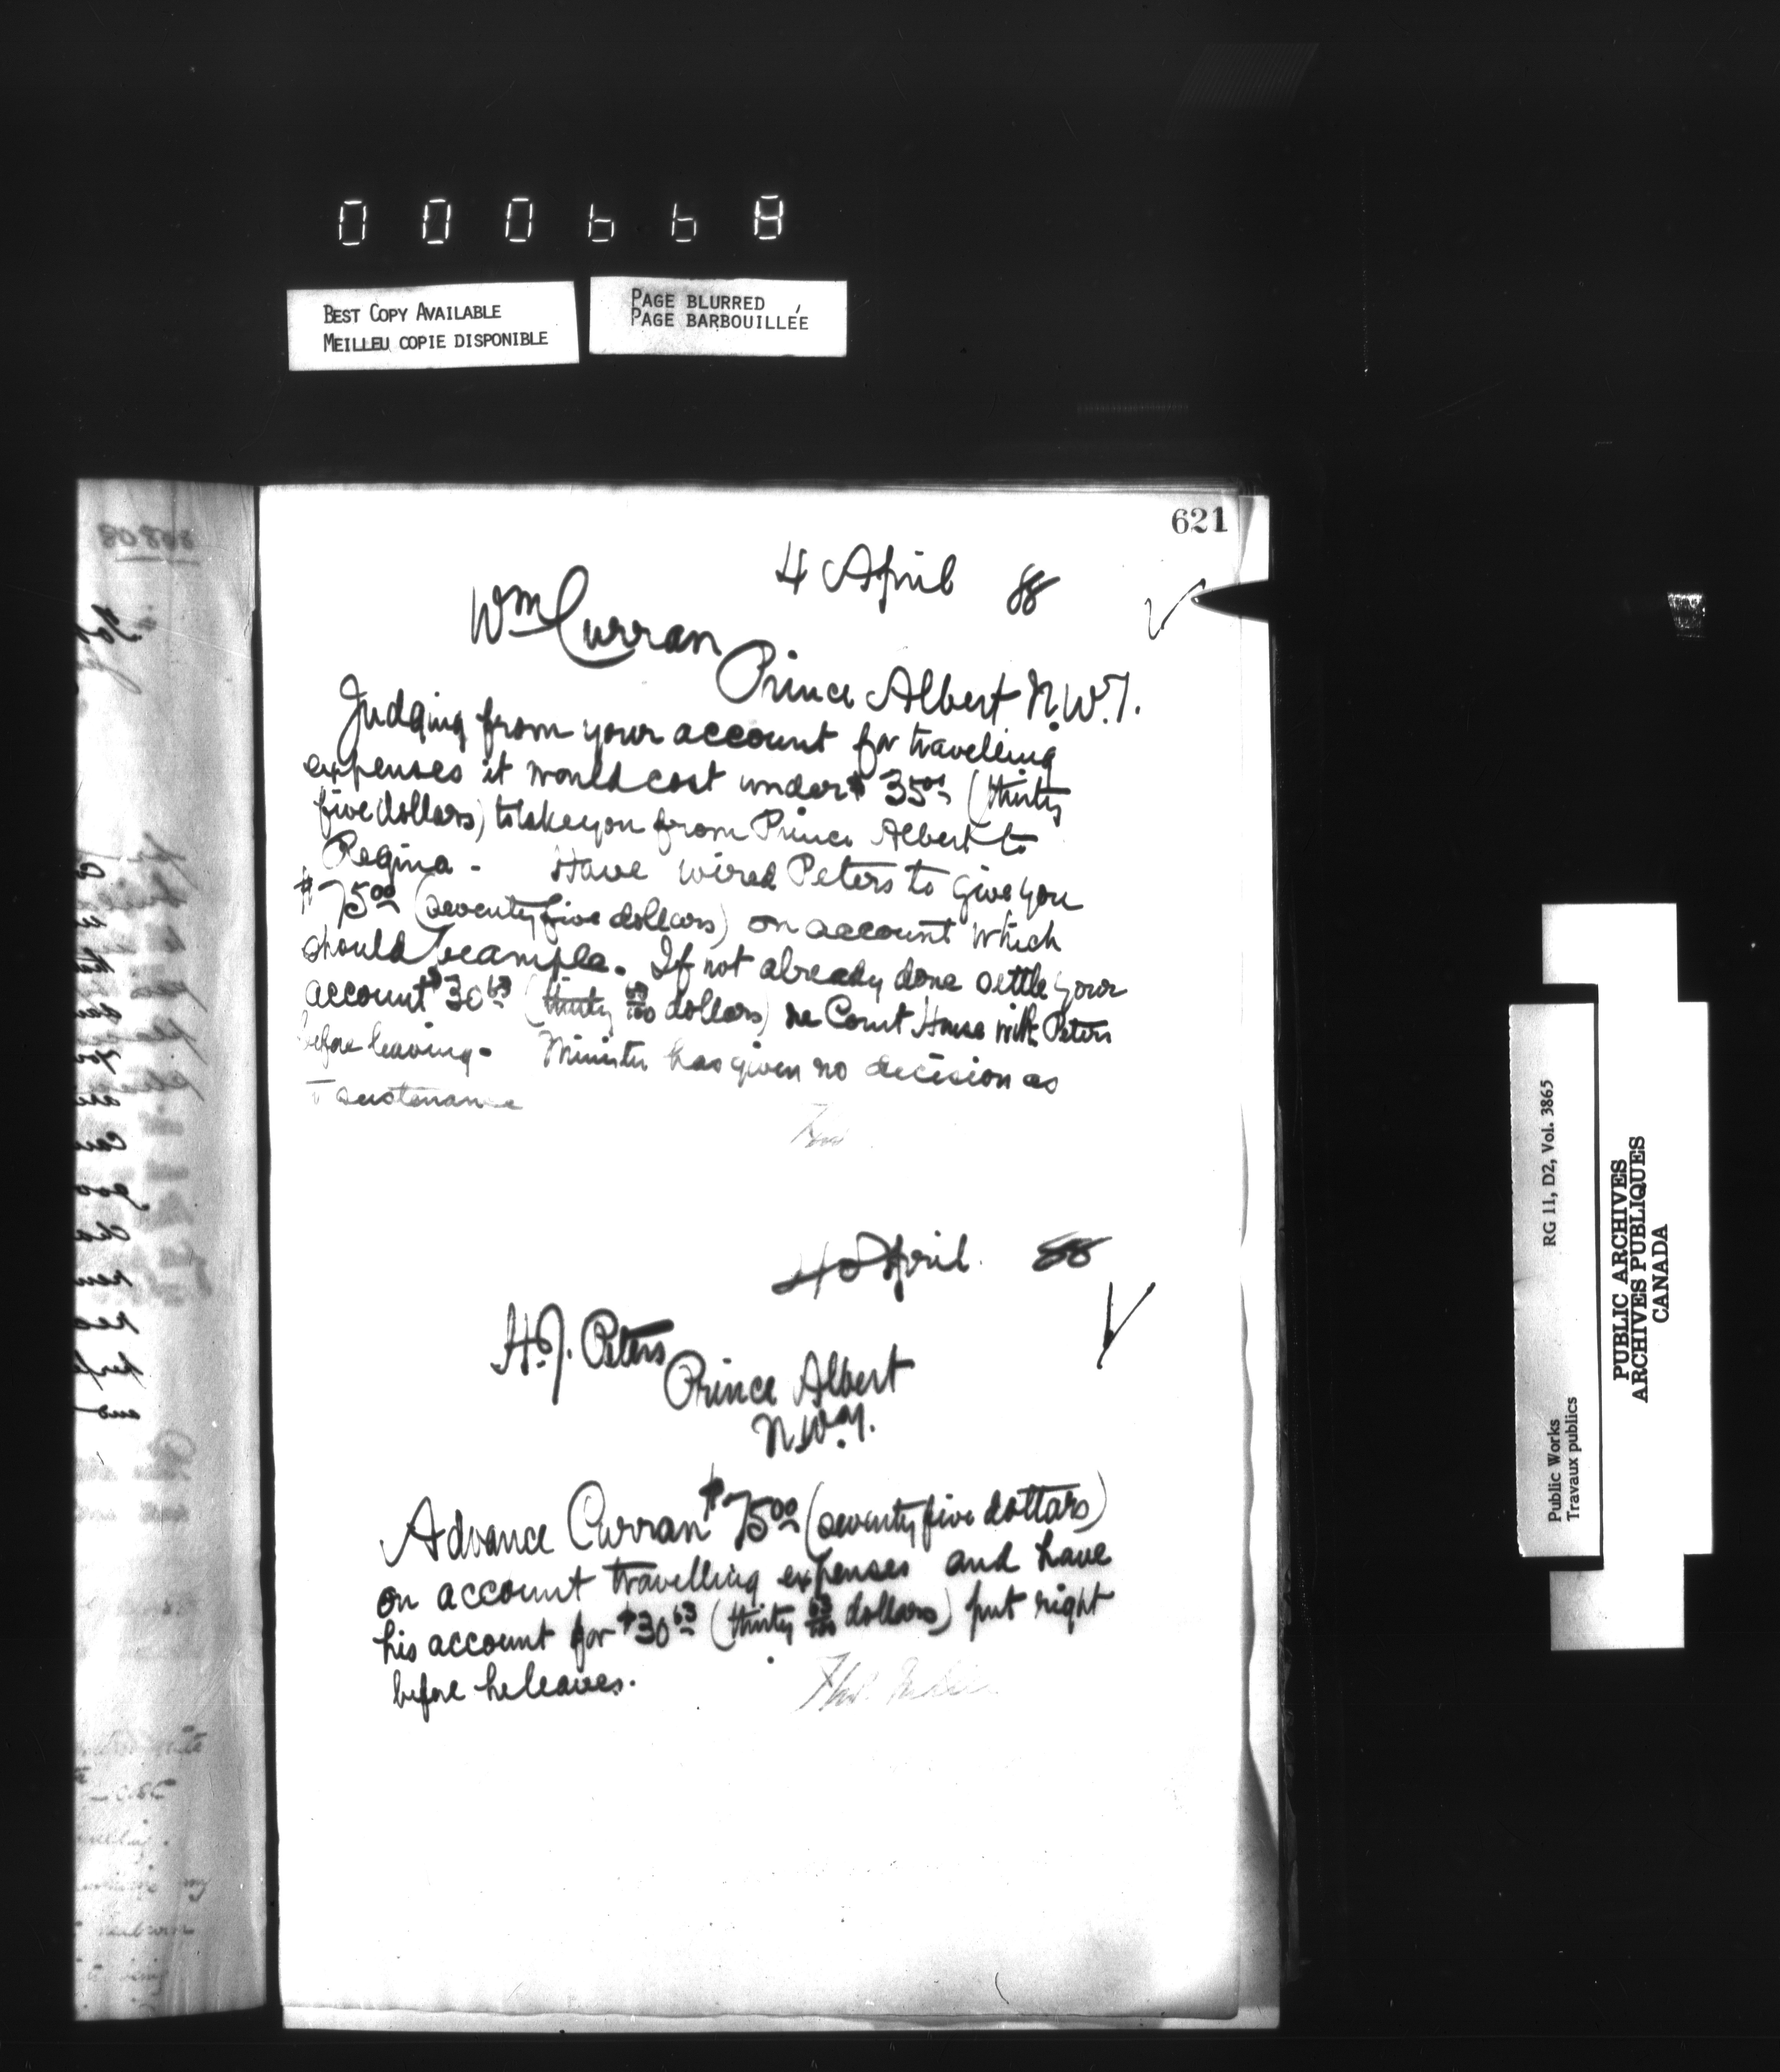 000668
BEST COPY AVAILABLE
MEILLEU COPIE DISPONIBLE
PAGE BLURRED
PAGE BARBOUILLÉE
621
4 April 88
Wm Curran
Prince Albert N.W.T.
Judging from your account for travelling
expenses it would cost under $35.00 (thirty
five dollars) to take you from Prince Albert to
Regina - Have wired Peters to give you
$75.00 (seventy five dollars) on account which
should be ample. If not already done settle your
account $30.63 (thirty 63/100 dollars) re Court House with Peters
before leaving - Minister has given no decision as
to sustenance
4 April. 88
H.J. Peters
Prince Albert
N.W.T.
Advance Curran $75.00 (seventy five dollars)
on account travelling expenses and have
his account for $30.63 (thirty 63/100 dollars) put right
before he leaves.
Public Works
Travaux publics
RG 11, D2, Vol. 3865
PUBLIC ARCHIVES
ARCHIVES PUBLIQUES
CANADA